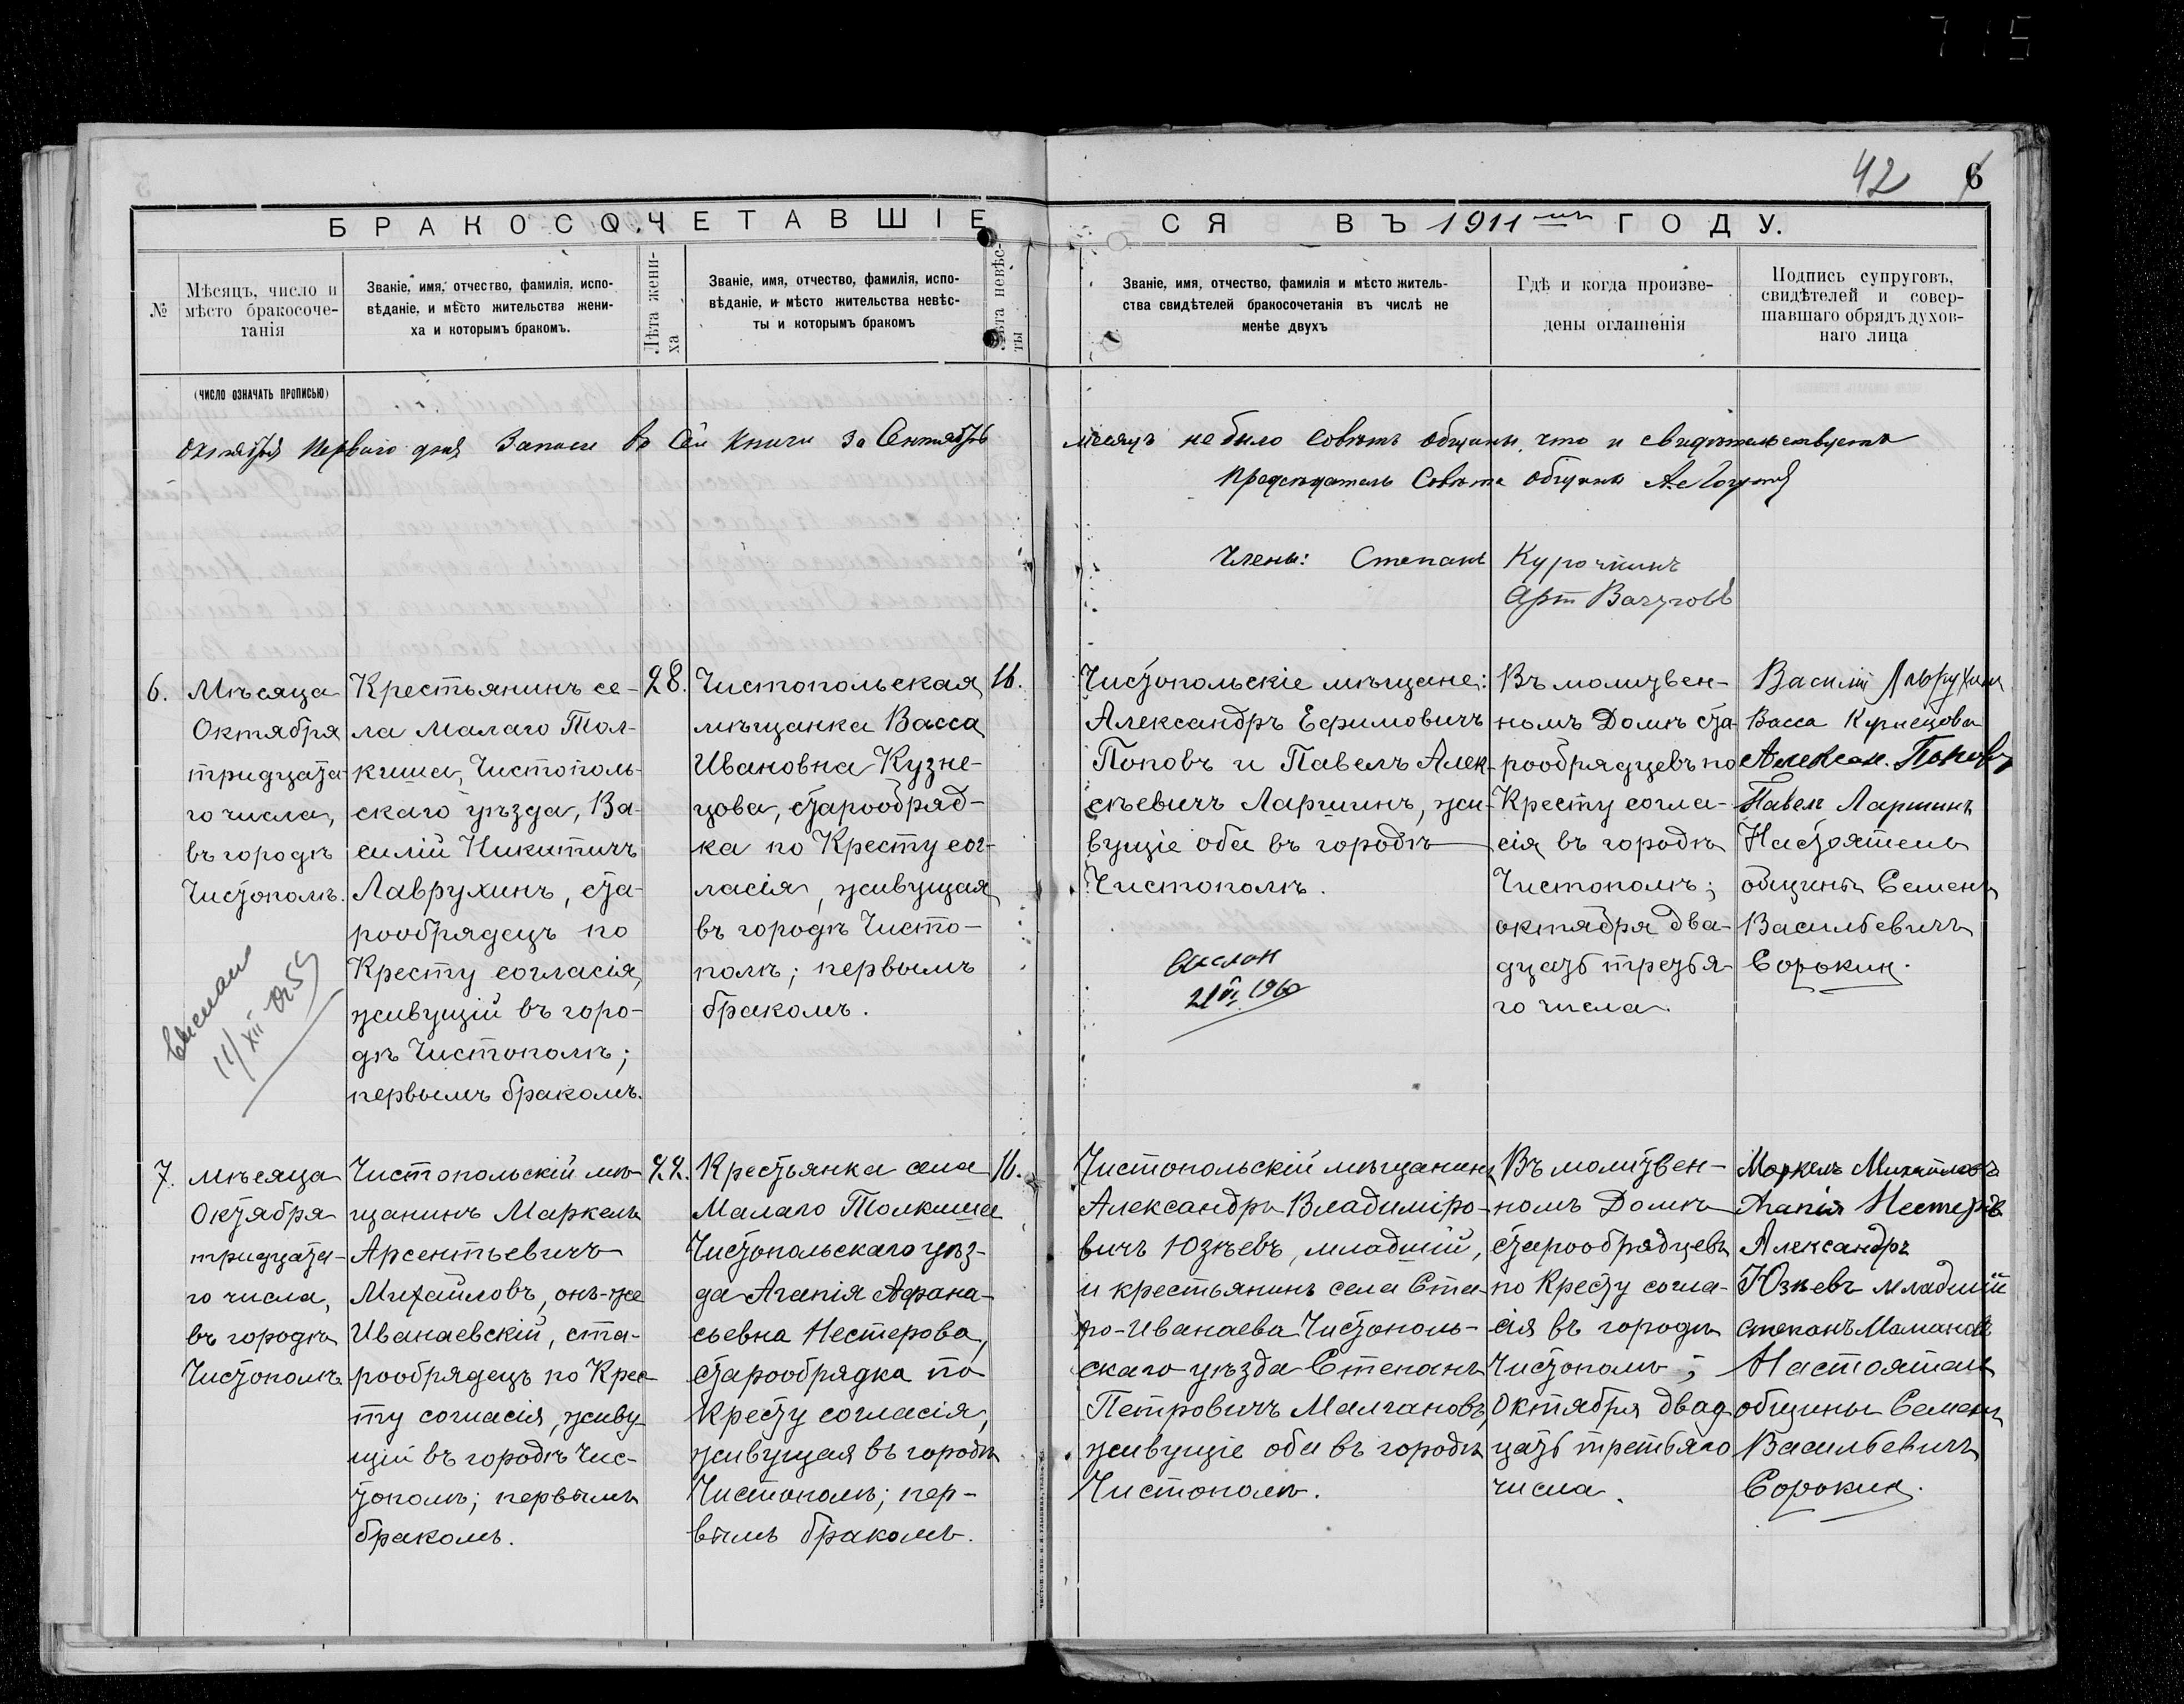 42 6
БРАКОСОЧЕТАВШІЕСЯ ВЪ 1911 ГОДУ.
№
Мѣсяцъ, число и
мѣсто бракосоче-
танія
Званіе, имя, отчество, фамилія, испо-
вѣданіе, и мѣсто жительства жени-
ха и которымъ бракомъ.
Лѣта жени-
ха
Званіе, имя, отчество, фамилія, испо-
вѣданіе, и мѣсто жительства невѣс-
ты и которымъ бракомъ
Лѣта невѣс-
ты
Званіе, имя, отчество, фамилія и мѣсто житель-
ства свидѣтелей бракосочетанія въ числѣ не
менѣе двухъ
Гдѣ и когда произве-
дены оглашенія
Подпись супруговъ,
свидѣтелей и совер-
шавшаго обрядъ духов-
наго лица
(ЧИСЛО ОЗНАЧАТЬ ПРОПИСЬЮ)
Октября перваго дня Записи во Сей Книги За Сентябрь месяцъ не было Советъ общины, что и свидѣтельствуетъ
Председатель Совѣта общины
Члены: Степанъ Курочкинъ
Арт Вачуговъ
6.
Мѣсяца
Октября
тридцата-
го числа,
въ городѣ
Чистополѣ.
Крестьянинъ се-
ла Малаго Тол-
киша, Чистополь-
скаго уѣзда, Ва-
силій Никитичъ
Лаврухинъ, ста-
рообрядецъ по
Кресту согласія,
живущій въ горо-
дѣ Чистополѣ;
первымъ бракомъ.
28.
Чистопольская
мѣщанка Васса
Ивановна Кузне-
цова, старообряд-
ка по Кресту сог-
ласія, живущая
въ городѣ Чисто-
полѣ; первымъ
бракомъ.
16.
Чистопольскіе мѣщане:
Александръ Ефимовичъ
Поповъ и Павелъ Алек-
сѣевичъ Ларшинъ, жи-
вущіе оба въ городѣ
Чистополѣ.
Въ молитвен-
номъ Домѣ ста-
рообрядцевъ по
Кресту согла-
сія въ городѣ
Чистополѣ;
октября два-
дцать третья-
го числа.
Василій Лаврухин
Васса Кузнецова
Алексан. Поповъ
Павелъ Ларшинъ
Настоятель
общины Семенъ
Васильевичъ
Сорокин.
выслан
11/XII 1959
выслан
21 VI 1960
7.
мѣсяца
Октября
тридцата-
го числа,
въ городѣ
Чистополѣ
Чистопольскій мѣ-
щанинъ Маркелъ
Арсентьевичъ
Михайловъ, онъ-же
Иванаевскій, ста-
рообрядецъ по Крес-
ту согласія, живу-
щій въ городѣ Чис-
тополѣ; первымъ
бракомъ.
22.
Крестьянка села
Малаго Толкиша
Чистопольскаго уѣз-
да Агапія Афана-
сьевна Нестерова,
старообрядка по
Кресту согласія,
живущая въ городѣ
Чистополѣ; пер-
вымъ бракомъ.
16.
Чистопольскій мѣщанинъ
Александръ Владиміро-
вичъ Юзѣевъ, младшій,
и крестьянинъ села Ста-
ро-Иванаева Чистополь-
скаго уѣзда Степанъ
Петровичъ Малгановъ,
живущіе оба въ городѣ
Чистополѣ.
Въ молитвен-
номъ Домѣ
старообрядцевъ
по Кресту согла-
сія въ городѣ
Чистополѣ;
Октября двад-
цать третьяго
числа.
Маркелъ Михайловъ
Агапія Нестерова
Александръ
Юзѣевъ младшій
Степанъ Малгановъ
Настоятель
общины Семенъ
Васильевичъ
Сорокин.